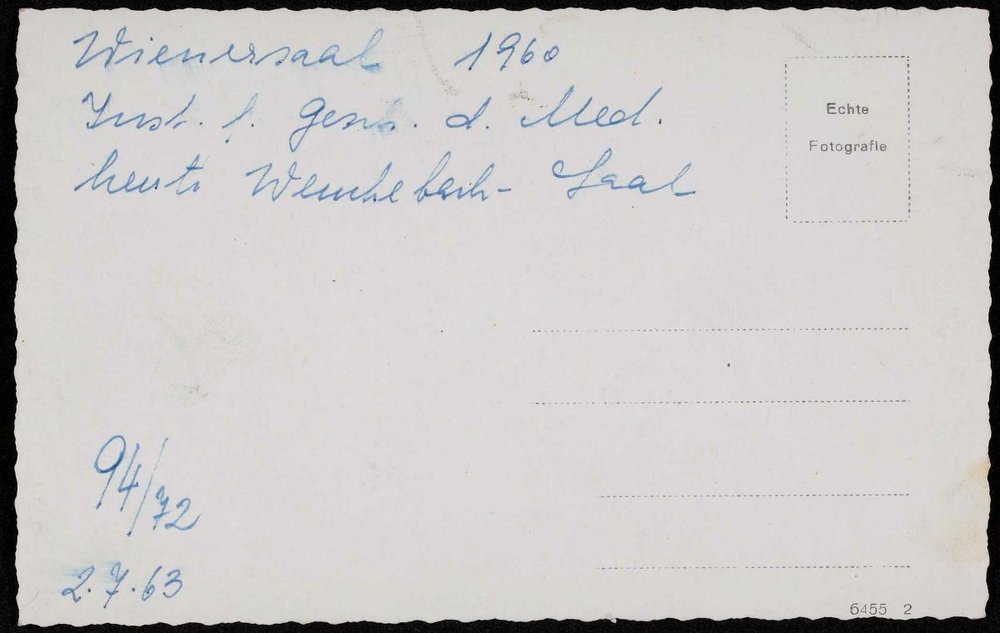 Wienersaal 1960
Inst. f. Gesch. d. Med.
heute Wenckebach-Saal
Echte
Fotografie
94/72
2.7.63
6455 2